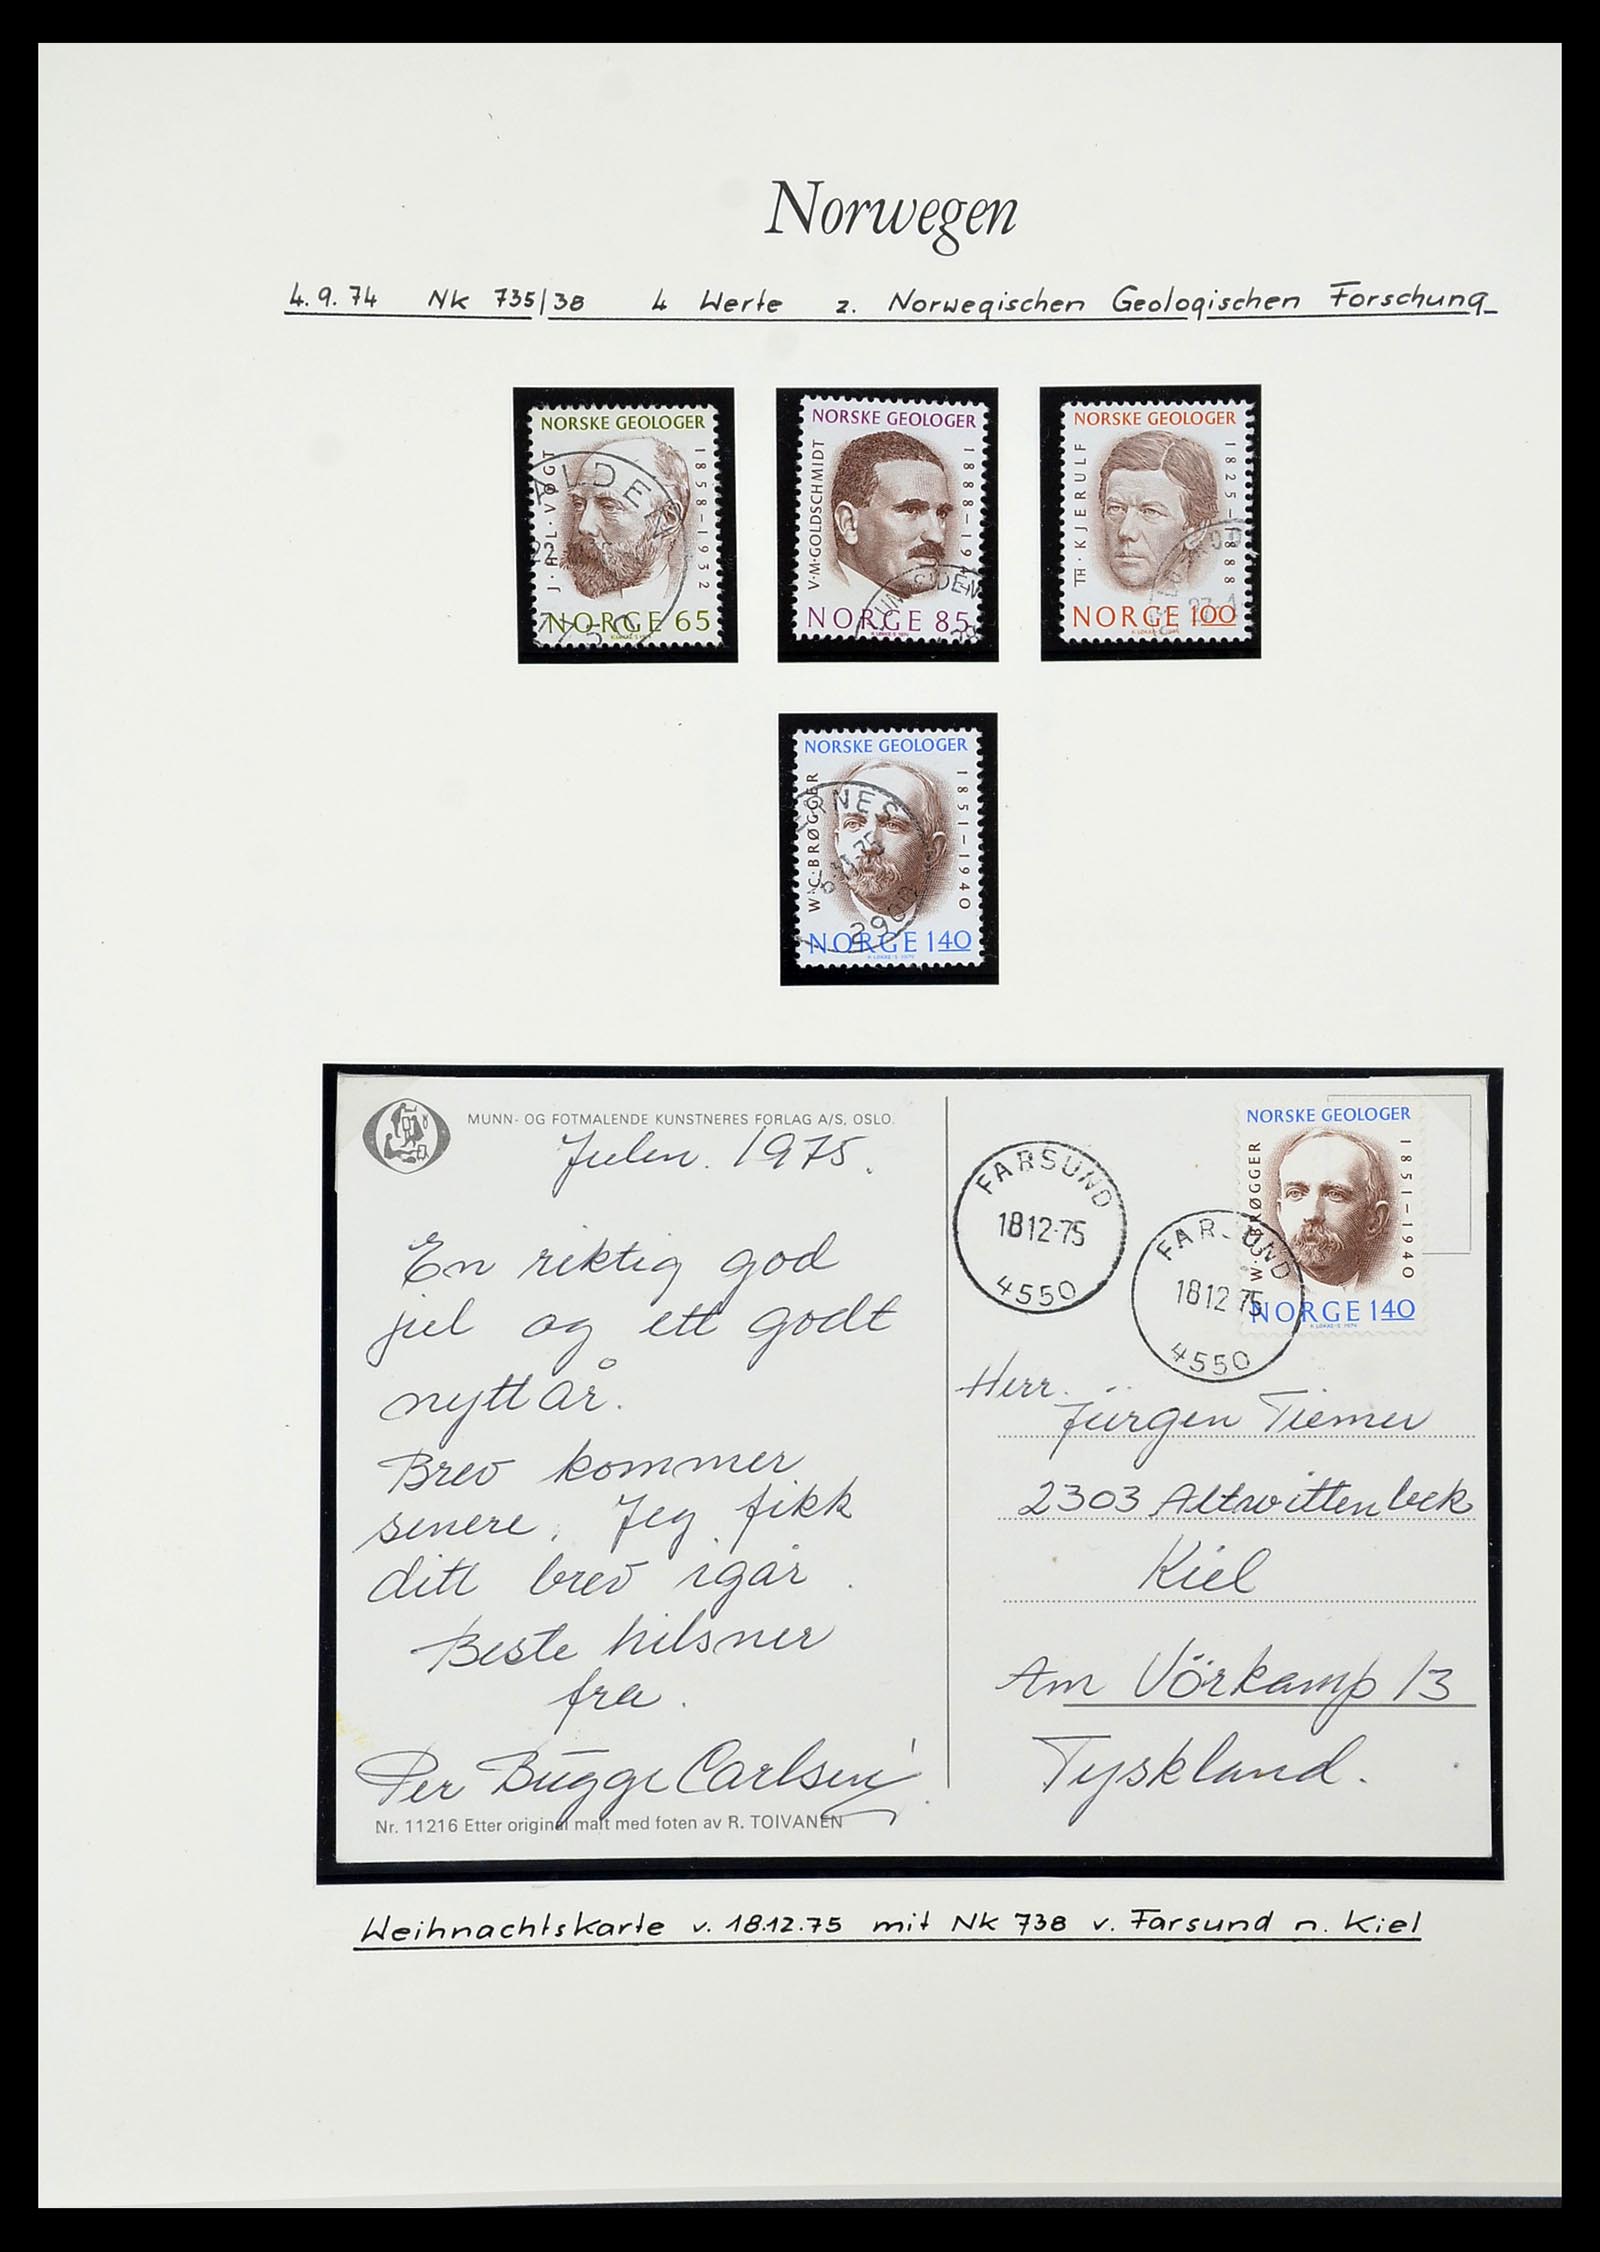 Norwegen
4.9.74 Nk 735/38 4 Werte z. Norwegischen Geologischen Forschung
NORSKE GEOLOGER
J·H·L·VOGT
1858–1932
ALDEN
22
750
NORGE 65
NORSKE GEOLOGER
V·M·GOLDSCHMIDT
1888–19
NORGE 85
K LØKKE-S 1974
NORSKE GEOLOGER
TH·KJERULF
1825–1888
NORGE 100
NORSKE GEOLOGER
W·C·BRØGGER
1851–1940
RNES
75
NORGE 140
K LØKKE-S 1974
MUNN- OG FOTMALENDE KUNSTNERES FORLAG A/S, OSLO.
Julen. 1975.
En riktig god
jul og ett godt
nytt år.
Brev kommer
senere. Jeg fikk
ditt brev igår.
Beste hilsner
fra.
Per Bugge Carlsen
Nr. 11216 Etter original malt med foten av R. TOIVANEN
FARSUND
18 12·75
4550
FARSUND
18 12 75
4550
NORSKE GEOLOGER
W·C·BRØGGER
1851–1940
NORGE 140
K LØKKE-S 1974
Herr.
Jürgen Tiemer
2303 Altwittenbek
Kiel
Am Vörkamp 13
Tyskland.
Weihnachtskarte v. 18.12.75 mit Nk 738 v. Farsund n. Kiel